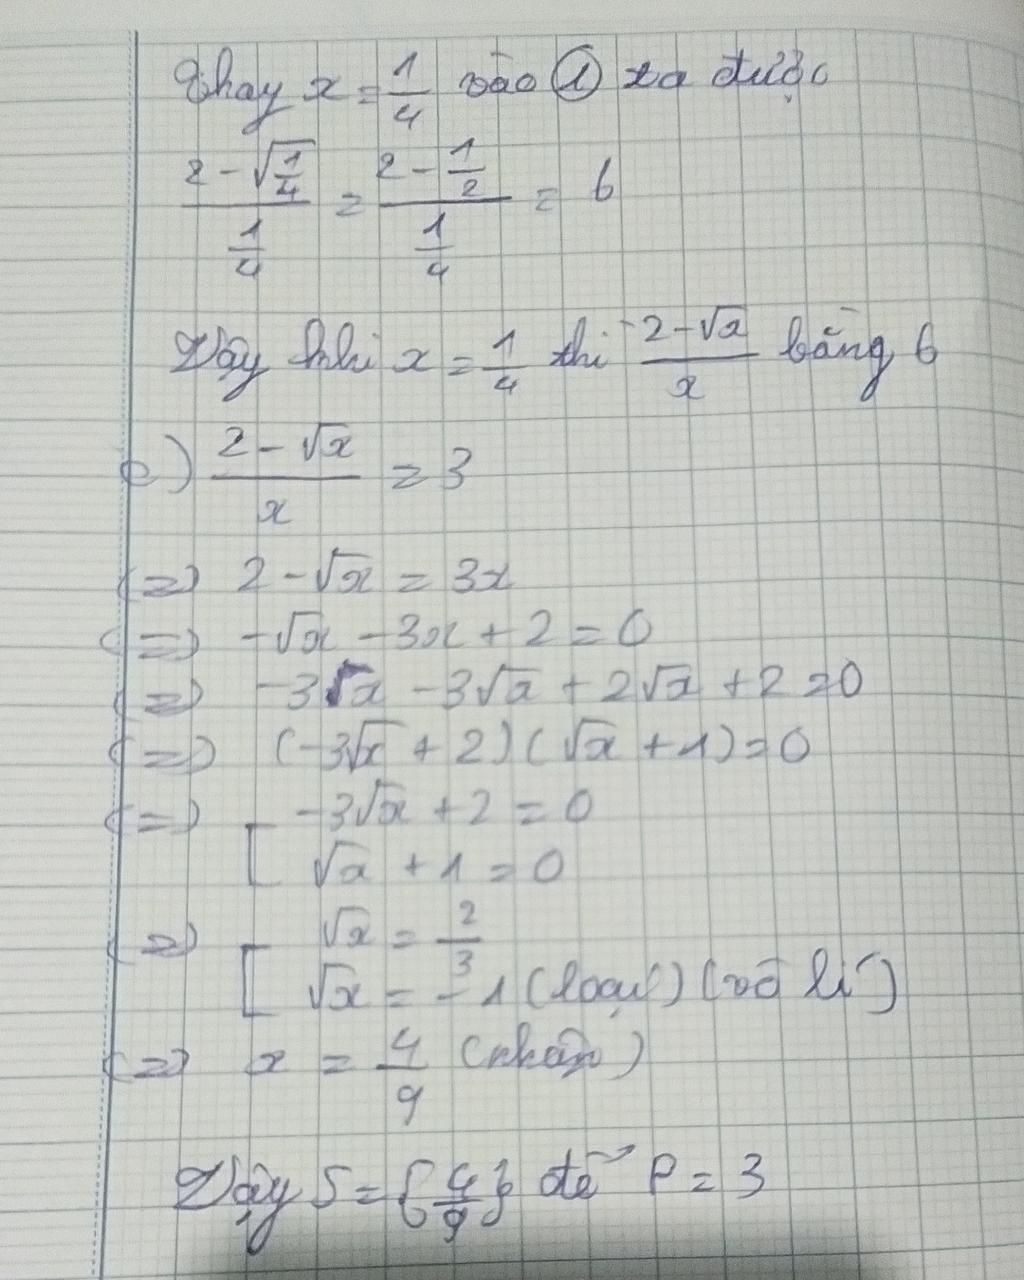 Thay x = 1/4 vào ① ta được
(2 - √(1/4)) / (1/4) = (2 - 1/2) / (1/4) = 6
Vậy khi x = 1/4 thì (2 - √x) / x bằng 6
c) (2 - √x) / x = 3
(=) 2 - √x = 3x
(=) -√x - 3x + 2 = 0
(=) -3√x - 3√x + 2√x + 2 = 0
(=) (-3√x + 2)(√x + 1) = 0
(=) [ -3√x + 2 = 0
√x + 1 = 0
(=) [ √x = 2/3
√x = -1 (loại) (vô lí)
(=) x = 4/9 (nhận)
Vậy S = {4/9} để P = 3